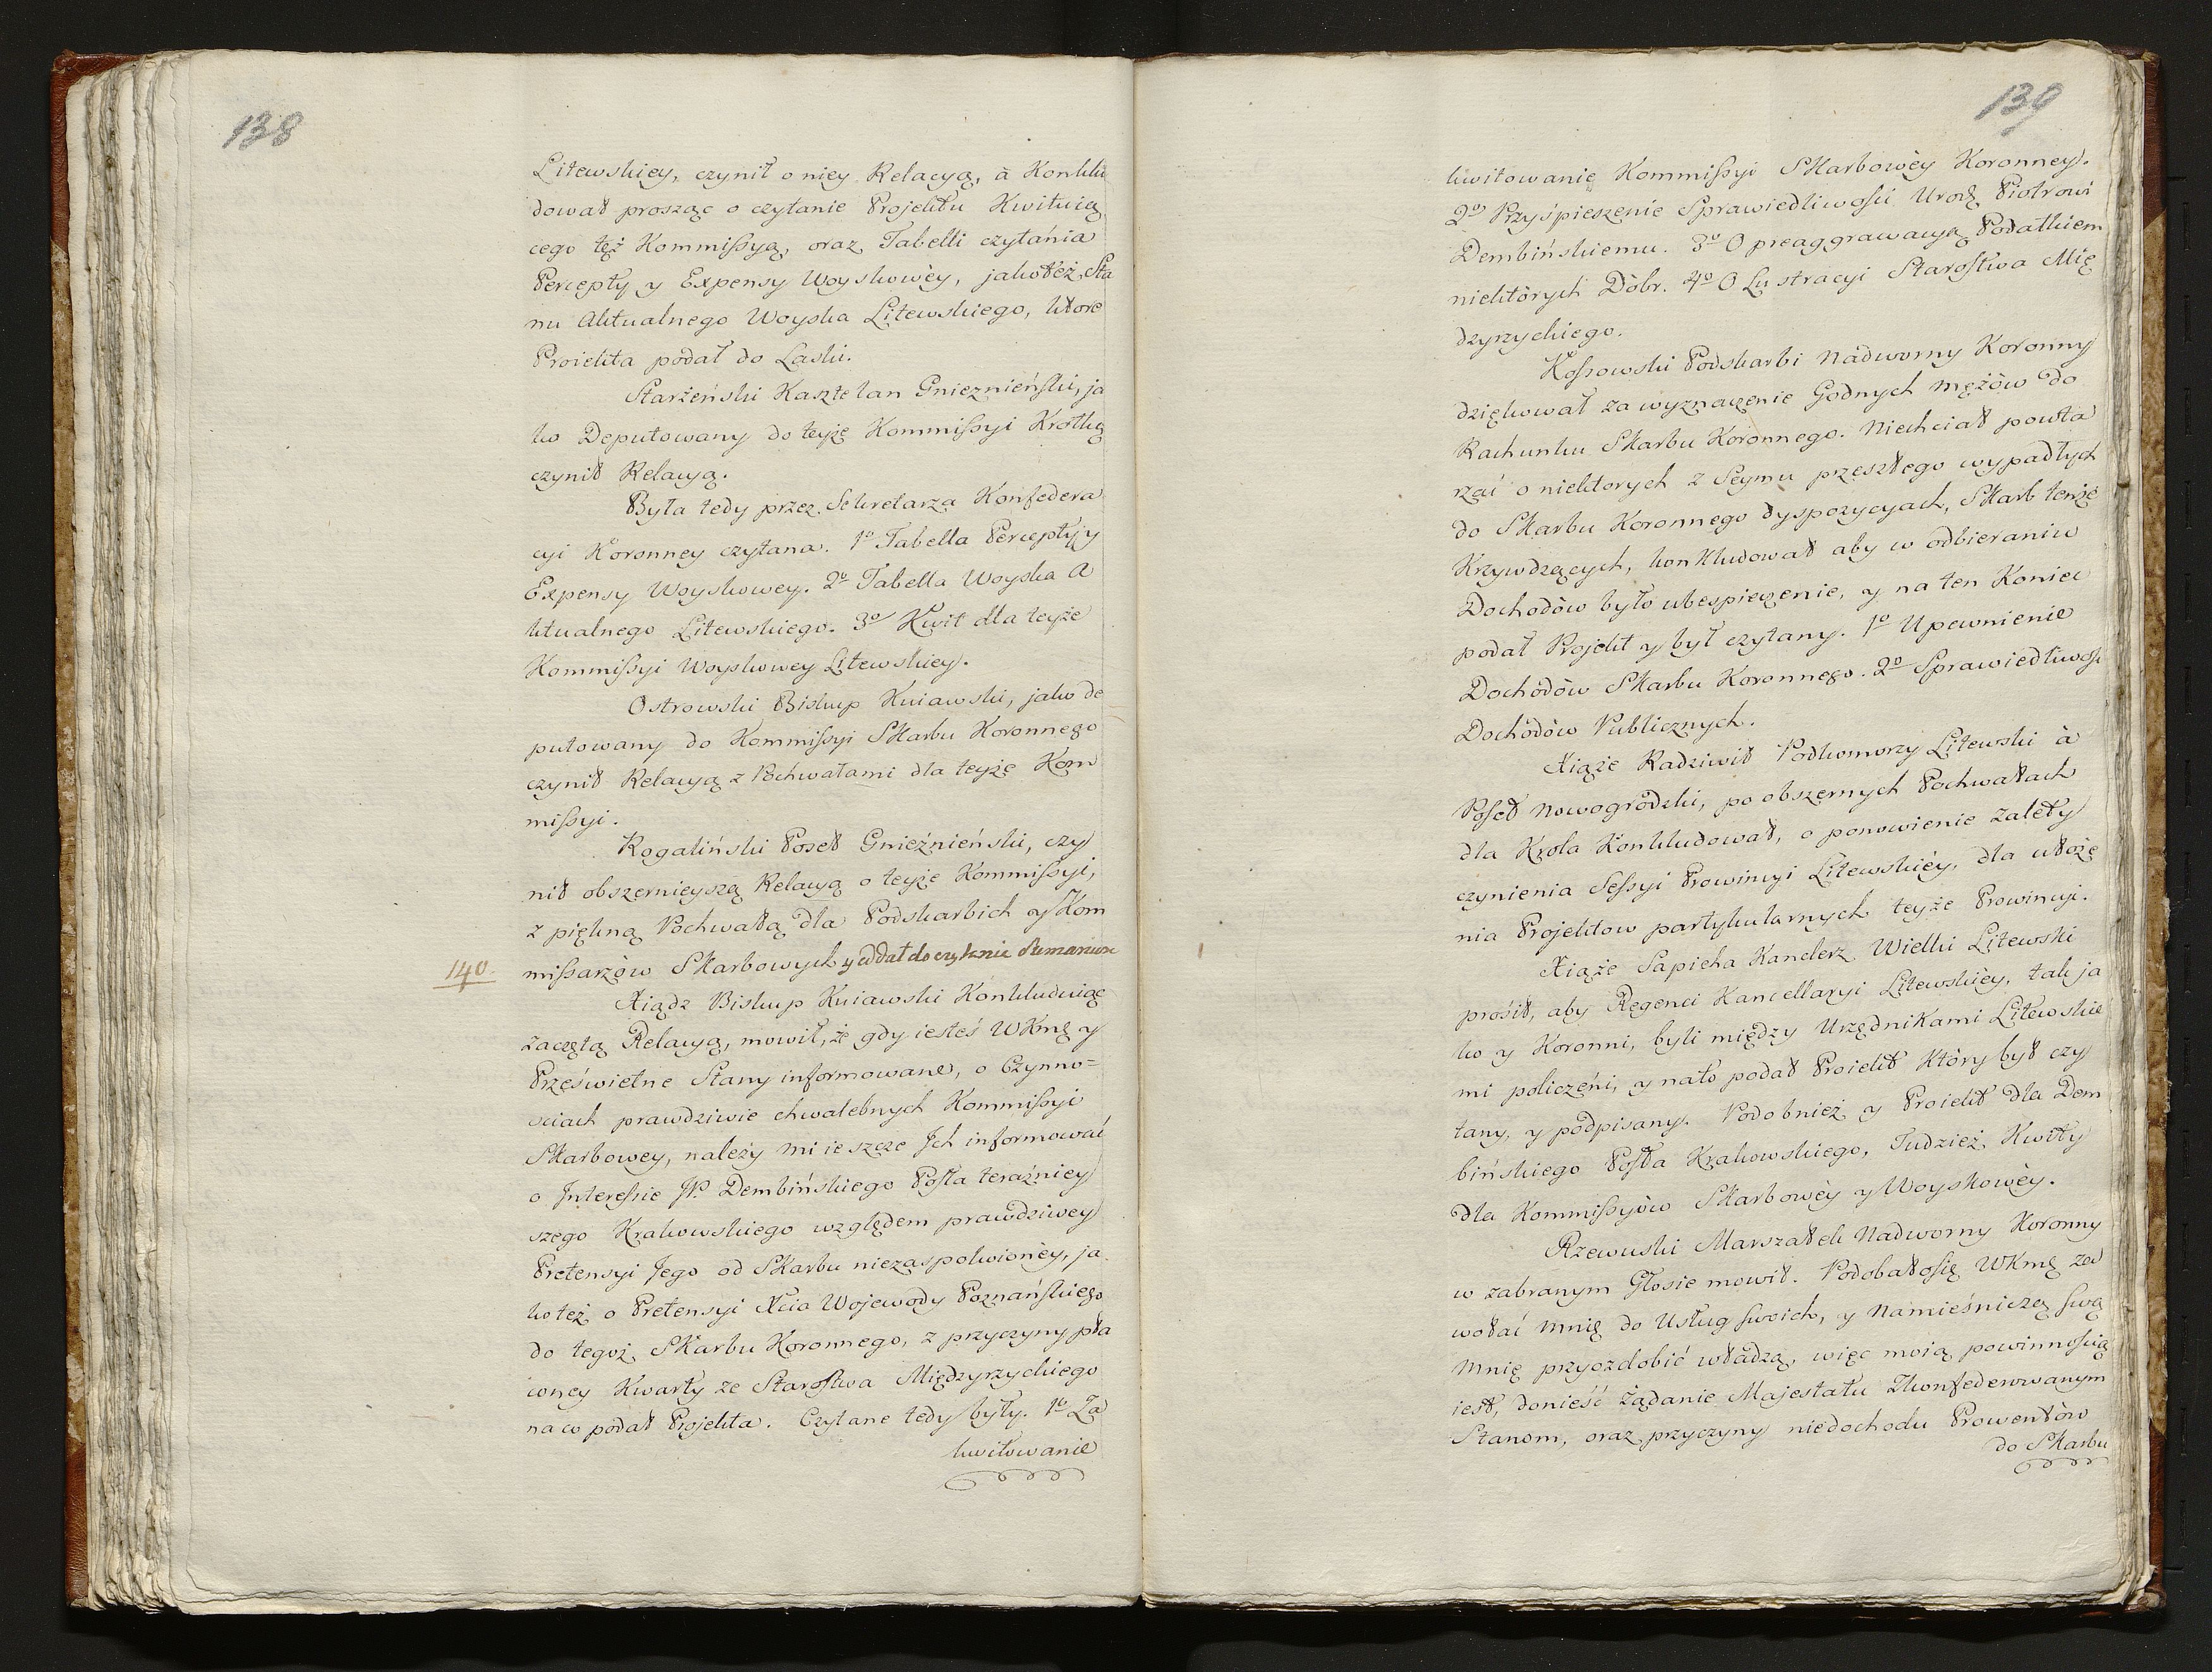 138
Litewskiey, czynił o niey Relacyą, à Konklu
dował prosząc o czytanie Projektu Kwituią
cego też Kommissyą, oraz Tabelli czytania
Percepty y Expensy Woyskowèy, jakoteż Sta
nu Aktualnego Woyska Litewskiego, ktore
Proiekta podał do Laski.
Starżeński Kasztelan Gnieznieński, ja
ko Deputowany do teyże Kommissyi Krotką
czynił Relacyą.
Była tedy przez Sekretarza Konfedera
cyi Koronney czytana. 1º Tabella Percepty y
Expensy Woyskowey. 2º Tabella Woyska A
ktualnego Litewskiego. 3º Kwit dla teyże
Kommissyi Woyskowey Litewskiey.
Ostrowski Biskup Kuiawski, jako de
putowany do Kommissyi Skarbu Koronnego
czynił Relacyą z Pochwałami dla teyże Kom
missyi.
Rogaliński Poseł Gnieźnieński, czy
nił obszernieyszą Relacyą o teyże Kommissyi,
z piękną Pochwałą dla Podskarbich y Kom
missarzòw Skarbowych y oddał do czytania Sumariusz
140.
Xiądz Biskup Kuiawski Konkluduiąc
zaczętą Relacyą, mowił, że gdy iesteś WKmę y
Prześwietne Stany informowane, o Czynno=
sciach prawdziwie chwalebnych Kommissyi
Skarbowey, należy mi ieszcze Jch informować
o Jnteressie JP. Dembińskiego Posła teraźniey
szego Krakowskiego względem prawdziwey
Pretensyi Jego od Skarbu niezaspokoionèy, ja
koteż o Pretensyi Xcia Wojewody Poznańskiego
do tegoż Skarbu Koronnego, z przyczyny pła
coney Kwarty ze Starostwa Międzyrzyckiego
na co podał Projekta. Czytane tedy były. 1º Za
kwitowanie
139
kwitowanie Kommissyi Skarbowèy Koronney.
2º Przyśpieszenie Sprawiedliwości Urodz. Piotrowi
Dembińskiemu. 3º O preaggrawacyą Podatkiem
niektòrych Dòbr. 4º O Lustracyi Starostwa Mię
dzyrzyckiego.
Kossowski Podskarbi Nadworny Koronny
dziękował za wyznaczenie Godnych Mężòw do
Rachunku Skarbu Koronnego. Niechciał powta
rzać o niektorych z Seymu przeszłego wypadłych
do Skarbu Koronnego dyspozycyach, Skarb tenże
Krzywdzących, konkludował aby w odbieraniu
Dochodòw było ubespieczenie, y na ten Koniec
podał Projekt y był czytany. 1º Upewnienie
Dochodòw Skarbu Koronnego. 2º Sprawiedliwość
Dochodòw Publicznych.
Xiąże Radziwił Podkomorzy Litewski à
Poseł Nowogrodzki, po obszernych Pochwałach
dla Krola Konkludował, o ponowienie zalety
czynienia Sessyi Prowincyi Litewskièy, dla ułoże
nia Projektow partykularnych teyże Prowincyi.
Xiąże Sapieha Kanclerz Wielki Litewski
prosił, aby Regenci Kancellaryi Litewskièy, tak ja
ko y Koronni, byli między Urzędnikami Litewskie
mi policzeni, y nato podał Proiekt Ktòry był czy
tany, y podpisany. Podobnież y Proiekt dla Dem
bińskiego Posła Krakowskiego, Tudzież Kwity
dla Kommissyòw Skarbowèy y Woyskowèy.
Rzewuski Marszałek Nadworny Koronny
w zabranym Głosie mowił. Podobałosię WKmę za
wołać mnię do Usług swoich, y Namieśniczą swą
mnię przyozdobić władzą, więc moią powinnością
iest, donieść Żądanie Majestatu Zkonfederowanym
Stanom, oraz przyczyny niedochodu Prowentòw
do Skarbu